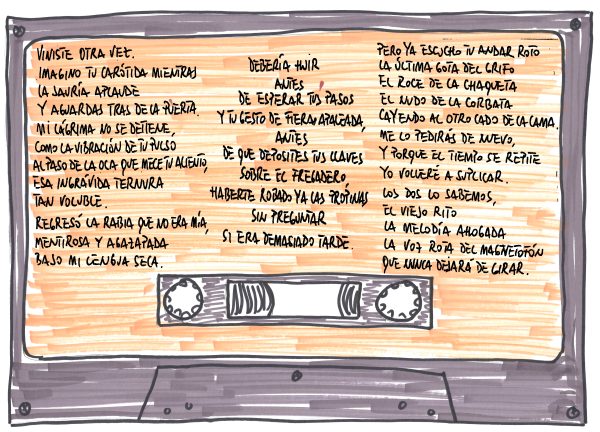 VINISTE OTRA VEZ.
IMAGINO TU CARÓTIDA MIENTRAS
LA JAURÍA APLAUDE
Y AGUARDAS TRAS DE LA PUERTA.
MI LÁGRIMA NO SE DETIENE,
COMO LA VIBRACIÓN DE TU PULSO
AL PASO DE LA OCA QUE MECE TU ALIENTO,
ESA INGRÁVIDA TERNURA
TAN VOLUBLE.
REGRESÓ LA RABIA QUE NO ERA MÍA,
MENTIROSA Y AGAZAPADA
BAJO MI LENGUA SECA.
DEBERÍA HUIR
ANTES
DE ESPERAR TUS PASOS
Y TU GESTO DE FIERA APALEADA,
ANTES
DE QUE DEPOSITES TUS LLAVES
SOBRE EL FREGADERO
HABERTE ROBADO YA LAS PROPINAS
SIN PREGUNTAR
SI ERA DEMASIADO TARDE.
PERO YA ESCUCHO TU ANDAR ROTO
LA ÚLTIMA GOTA DEL GRIFO
EL ROCE DE LA CHAQUETA
EL NUDO DE LA CORBATA
CAYENDO AL OTRO LADO DE LA CAMA.
ME LO PEDIRÁS DE NUEVO,
Y PORQUE EL TIEMPO SE REPITE
YO VOLVERÉ A SUPLICAR.
LOS DOS LO SABEMOS,
EL VIEJO RITO
LA MELODÍA AHOGADA
LA VOZ ROTA DEL MAGNETOFÓN
QUE NUNCA DEJARÁ DE GIRAR.